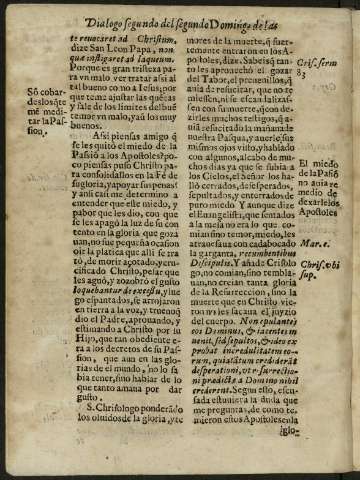 Dialogo segundo del segundo Domingo de las
te reuocaret ad Christum,
dize San Leon Papa, non
quæ instigaret ad laqueum.
Porque es gran tristeza pa-
ra vn malo ver tratar assi al
tal bueno como a Iesus; por
que teme ajustar las que as
y sale de los limites del bue
temor vn malo, ya sò los muy
buenos.
Sò cobar-
des los q te
mē medi-
tar la Pas
sion,
Assi piensas amigo q
se les quitò el miedo de la
Passiō a los Apostoles? po-
co piensas puso Christo pa-
ra consolidallos en la Fè de
su gloria, y apoyar sus penas?
y assi casi me determino a
entender que este miedo, y
pabor les dio, con que
se les apagò la luz de su con
tento en la gloria que goza
uan, no fue pequeña ocasion
oir la platica que alli se tra
tò, de morir açotado, y cru-
cificado Christo, pesar que
les aguò, y zozobrò el gusto
loquebantur de excessu, y lue
go espantados, se arrojaron
en tierra a la voz, y truenoq
dio el Padre, aprouando, y
estimando a Christo por su
Hijo, que tan obediente e-
ra a los decretos de su Pas-
sion, que aun en las glo-
rias de el mundo, no lo sa
bia tener, sino hablar de lo
que tanto amaua por dar
gusto.
S. Chrisologo ponderādo
los oluidos de la gloria, y te
mores de la muerte, q fuer-
temente entraron en los A-
postoles, dize. Sabeis q tan-
to les aprouechò el gozar
del Tabor, el prenenillos, q
auia de resucitar, que no te
miessen, ni se escandalizas-
sen con su muerte, con de-
zilles muchos testigos, q a-
uia resucitado la mañana de
nuestra Pasqua, y auerle sus
mismos ojos visto, y hablado
con algunos, al cabo de mu-
chos dias ya que se subia a
los Cielos, el Señor los ha-
llò cerrados, desesperados,
sepultados, y enterrados de
puro miedo. Y aunque dize
el Euangelista, que sentados
a la mesa no era lo que co-
mian sino temor, miedo, les
atrauesaua con cada bocado
la garganta, recumbentibus
Discipulis. Y añada Crisolo
go, no comian, sino tembla-
uan, no creian tanta gloria
de la Resurreccion, sino la
muerte que en Christo vie-
ron les sacaua el juyzio
del cuerpo. Non epulantes
eos Dominus, & iacentes in
uenit, sed sepultos, & ideo ex
probat incredulitatem eo-
rum, quia tātum crediderāt
desperationi, vt resurrectio-
ni prædictæ a Domino nihil
crederent. Segun esso, escu-
sada estuuiera la duda que
me preguntas, de como te-
mieron estos Apostoles en la
glo-
Cris. serm
83
El miedo
de la Pasiō
no auia re
medio de
dexarle los
Apostoles
Mar. c.
Chris. vbi
sup.